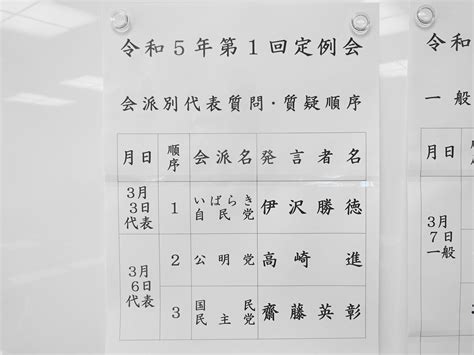 令和5年第1回定例会
会派別代表質問・質疑順序
月日 順序 会派名 発言者名
3月3日代表 1 いばらき自民党 伊沢勝徳
3月6日代表 2 公明党 高崎進
3 国民民主党 齋藤英彰
令和
一般
3月7日一般